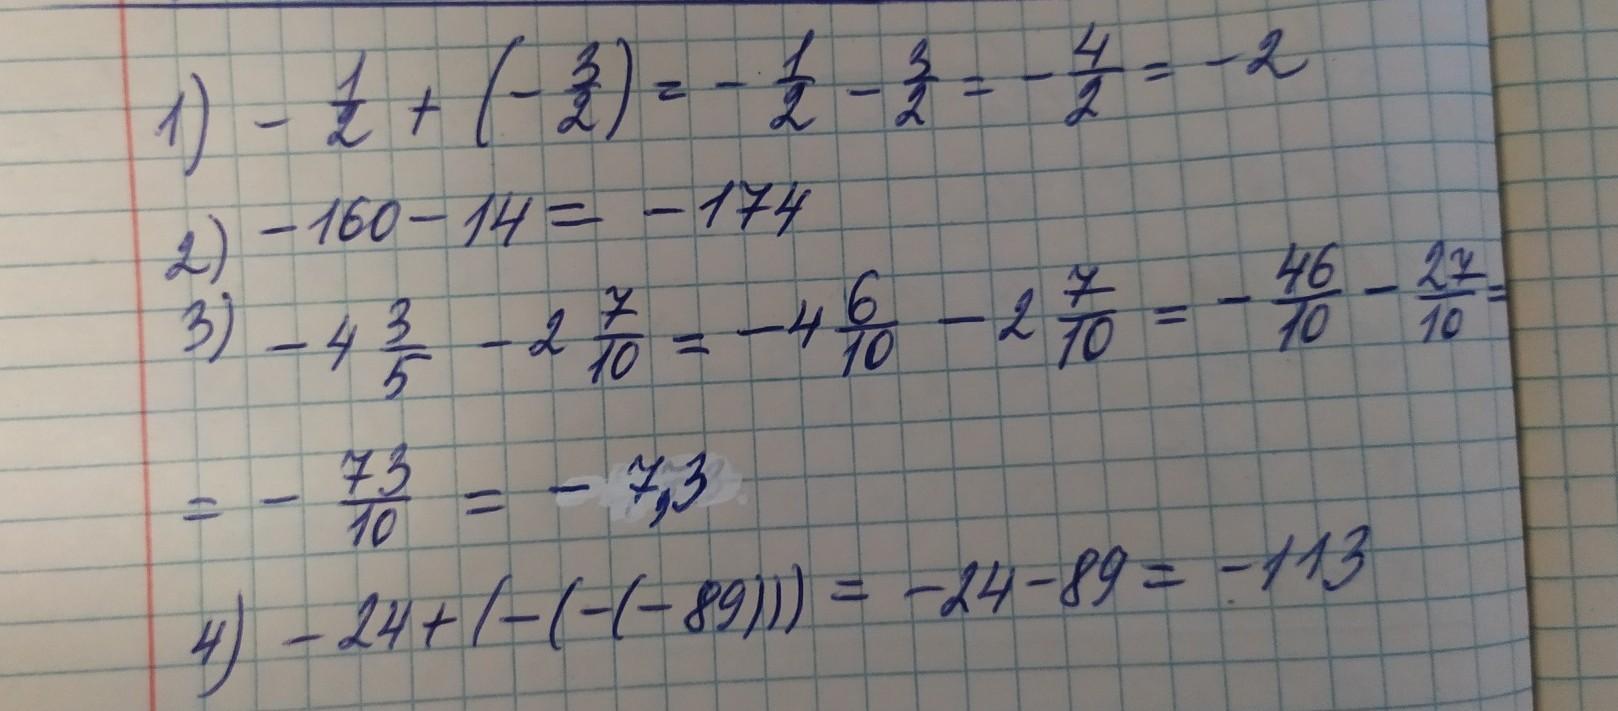 1) - 1/2 + (- 3/2) = - 1/2 - 3/2 = - 4/2 = -2
2) -160 - 14 = -174
3) - 4 3/5 - 2 7/10 = -4 6/10 - 2 7/10 = - 46/10 - 27/10 =
= - 73/10 = - 7,3
4) - 24 + (-(-(-89))) = -24 - 89 = -113